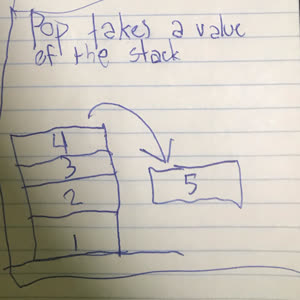 Pop takes a value
of the stack
4
3
5
2
1